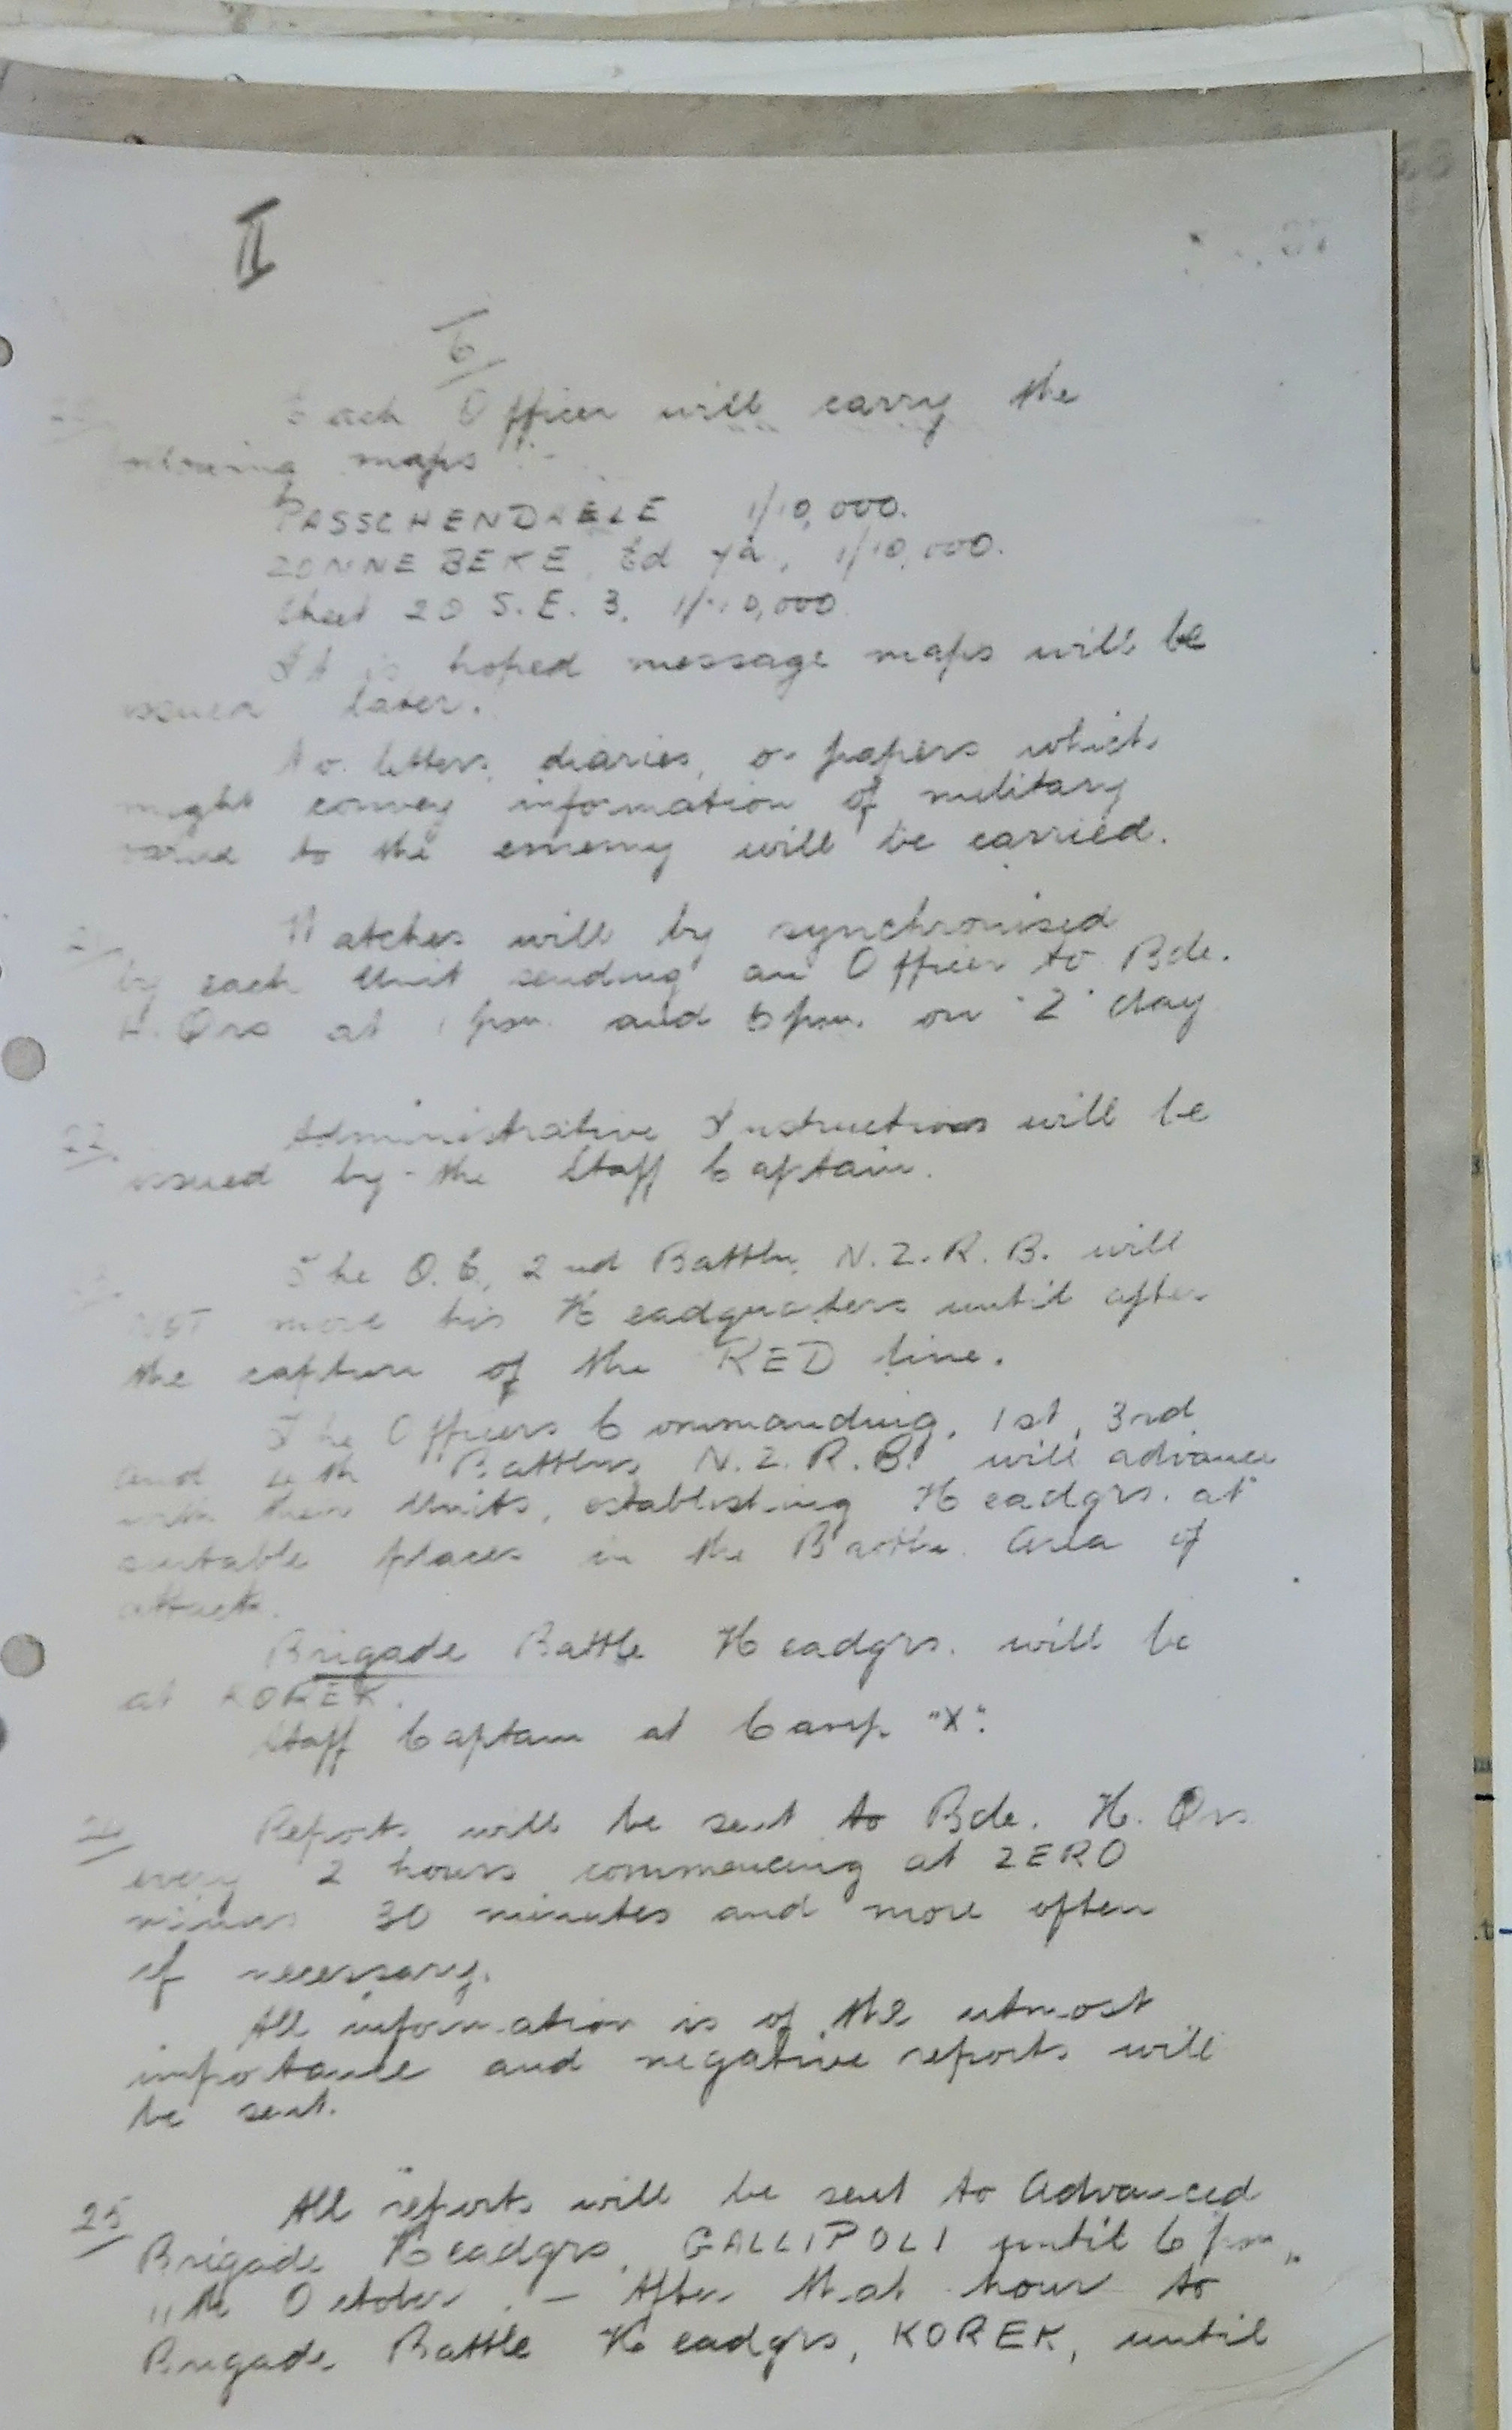 II
6
Each Officer will carry the
following maps :-
PASSCHENDAELE 1/10,000.
ZONNEBEKE, Ed 7a, 1/10,000.
Sheet 20 S.E. 3. 1/10,000
It is hoped message maps will be
issued later.
No letters, diaries, or papers which
might convey information of military
value to the enemy will be carried.
21 Watches will by synchronised
by each Unit sending an Officer to Bde.
H. Qrs at 1 pm. and 6 pm. on "Z" day
22 Administrative Instructions will be
issued by the Staff Captain.
The O.C. 2nd Battln. N.Z.R.B. will
NOT move his Headquarters until after
the capture of the RED line.
The Officers Commanding, 1st, 3rd
and 4th Battlns N.Z.R.B. will advance
with their Units, establishing Headqrs. at
suitable places in the Battln. Area of
attack.
Brigade Battle Headqrs. will be
at KOREK.
Staff Captain at Camp "X".
24 Reports will be sent to Bde. H. Qrs
every 2 hours commencing at ZERO
minus 30 minutes and more often
if necessary.
All information is of the utmost
importance and negative reports will
be sent.
25 All reports will be sent to Advanced
Brigade Headqrs, GALLIPOLI until 6 pm,
11th October. — After that hour to
Brigade Battle Headqrs, KOREK, until